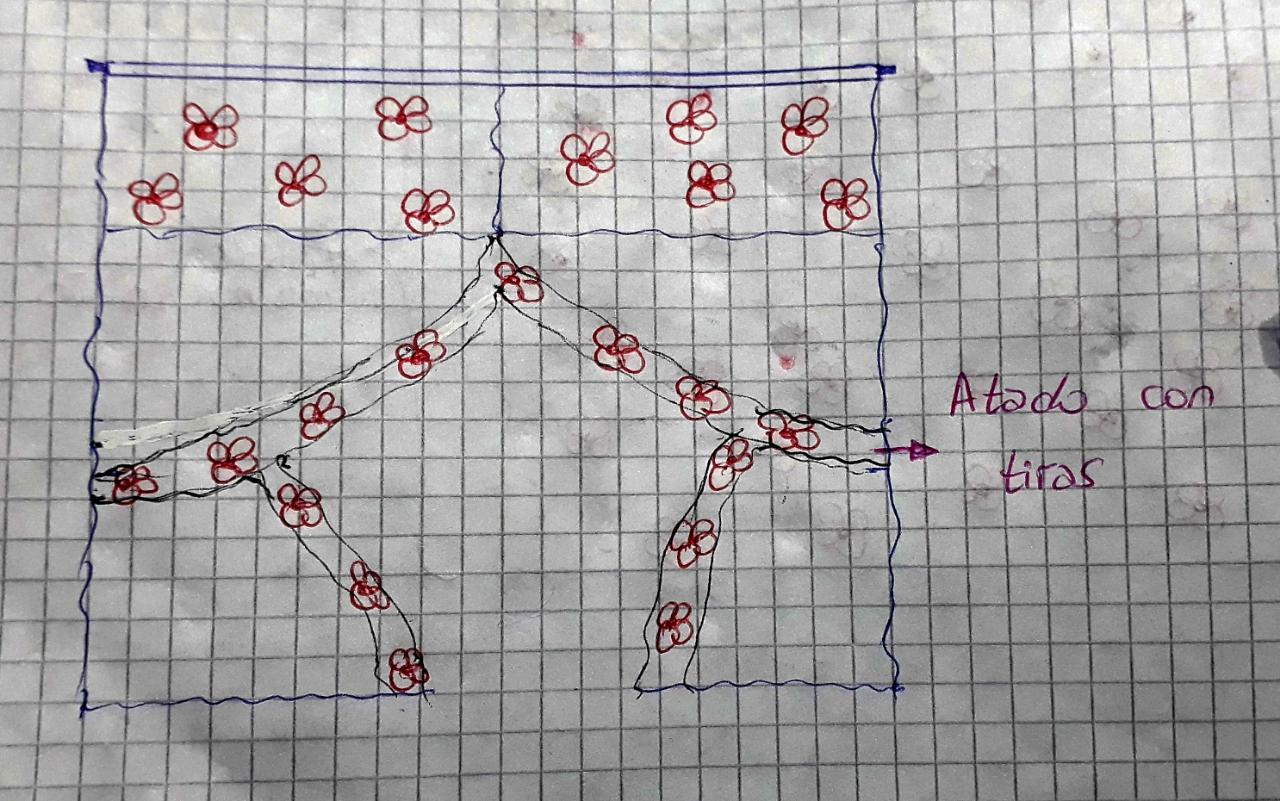 Atado con
tiras